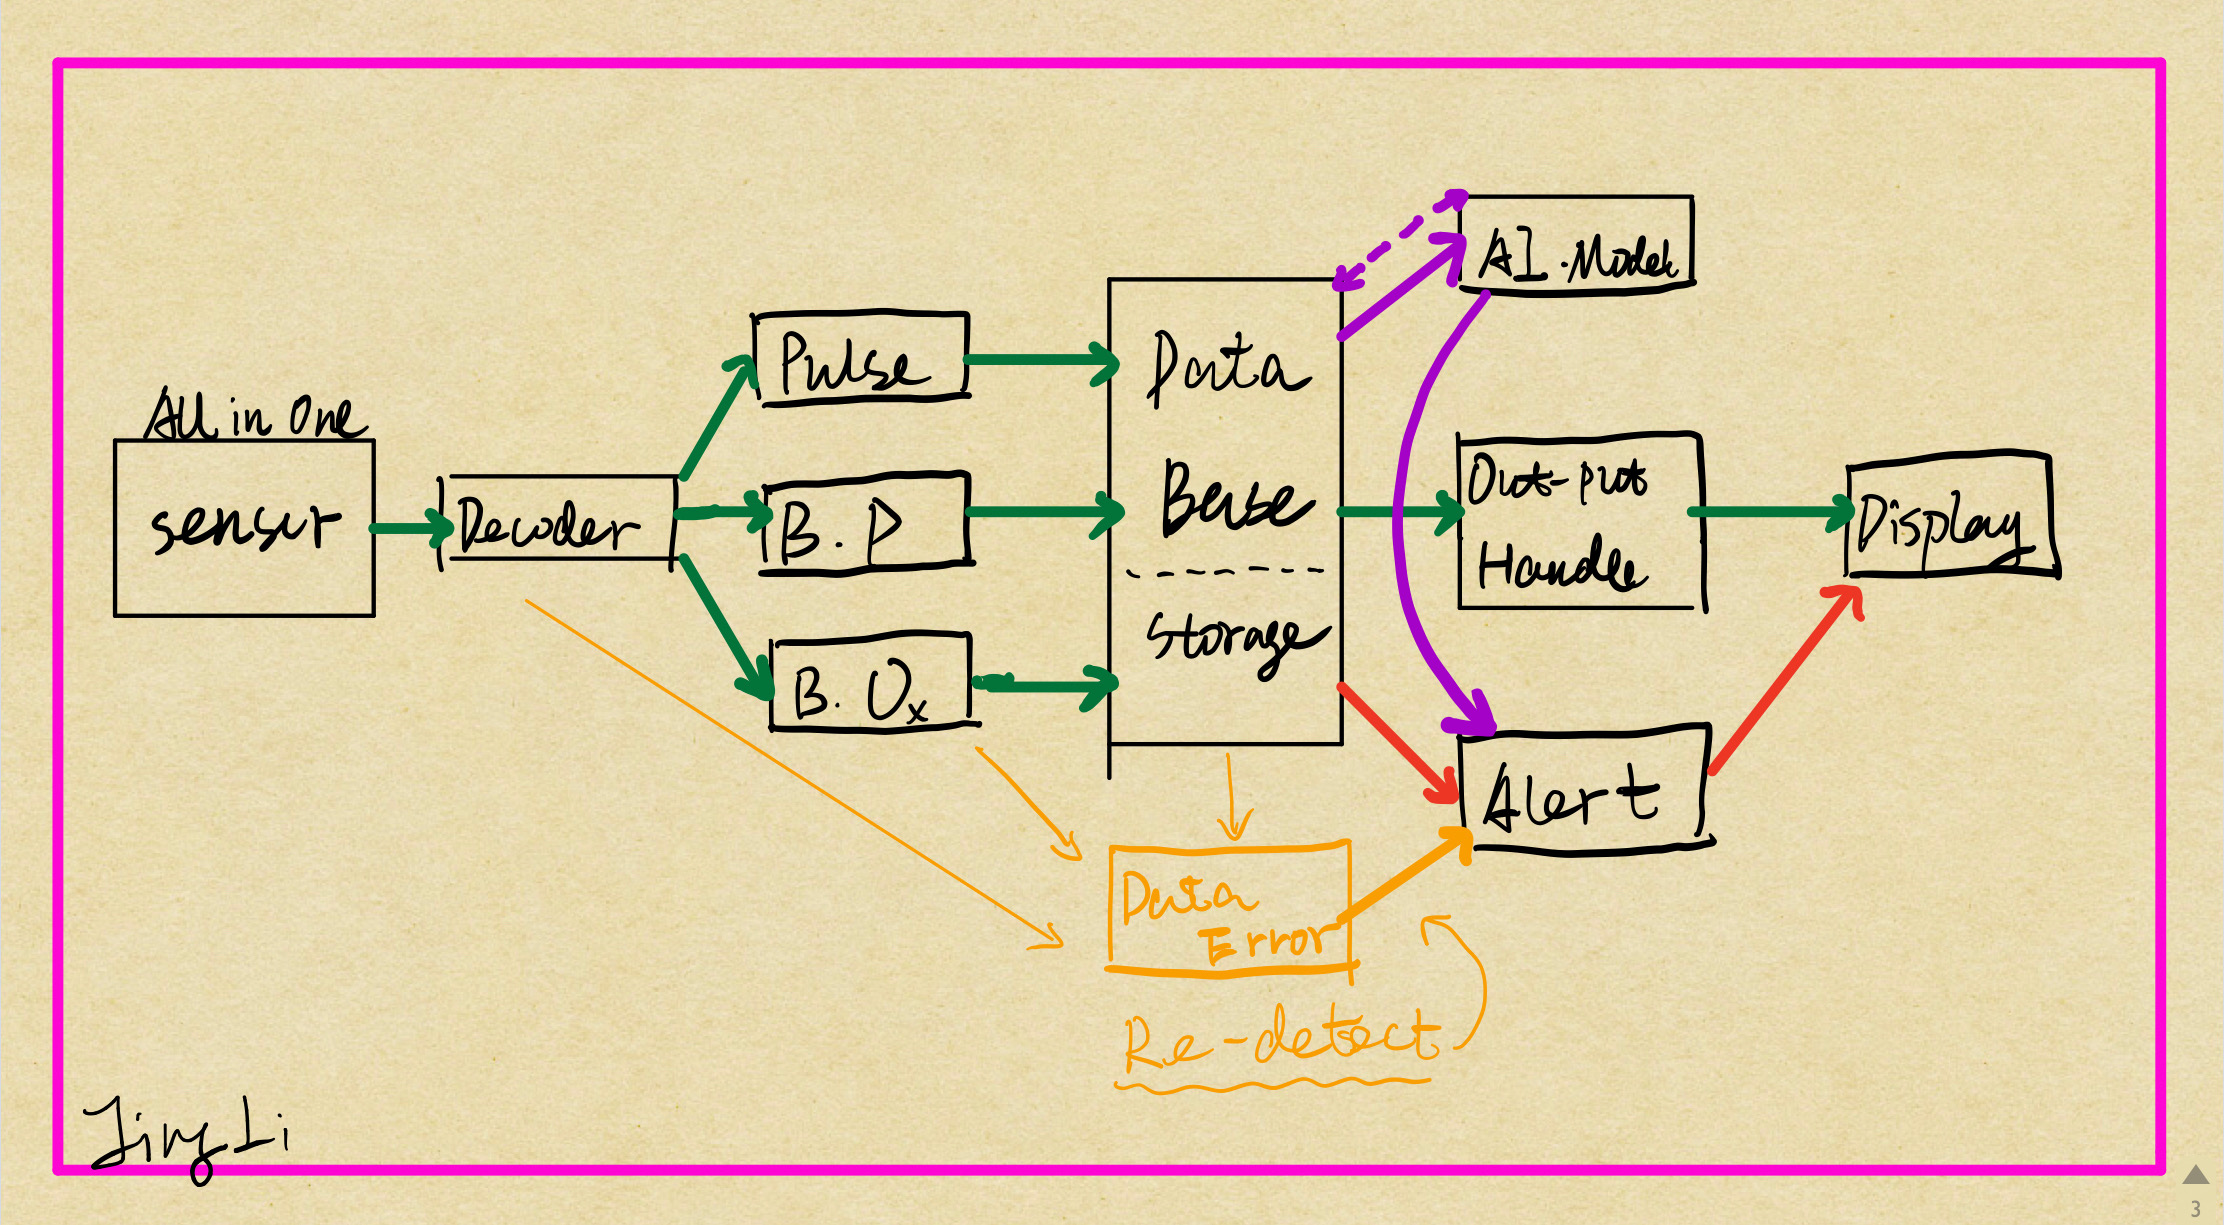 All in One
sensur
Decoder
Pulse
B.P
B.Ox
Data
Base
Storage
AI.Model
Out-put
Handle
Display
Alert
Data
Error
Re-detect
Jing Li
3